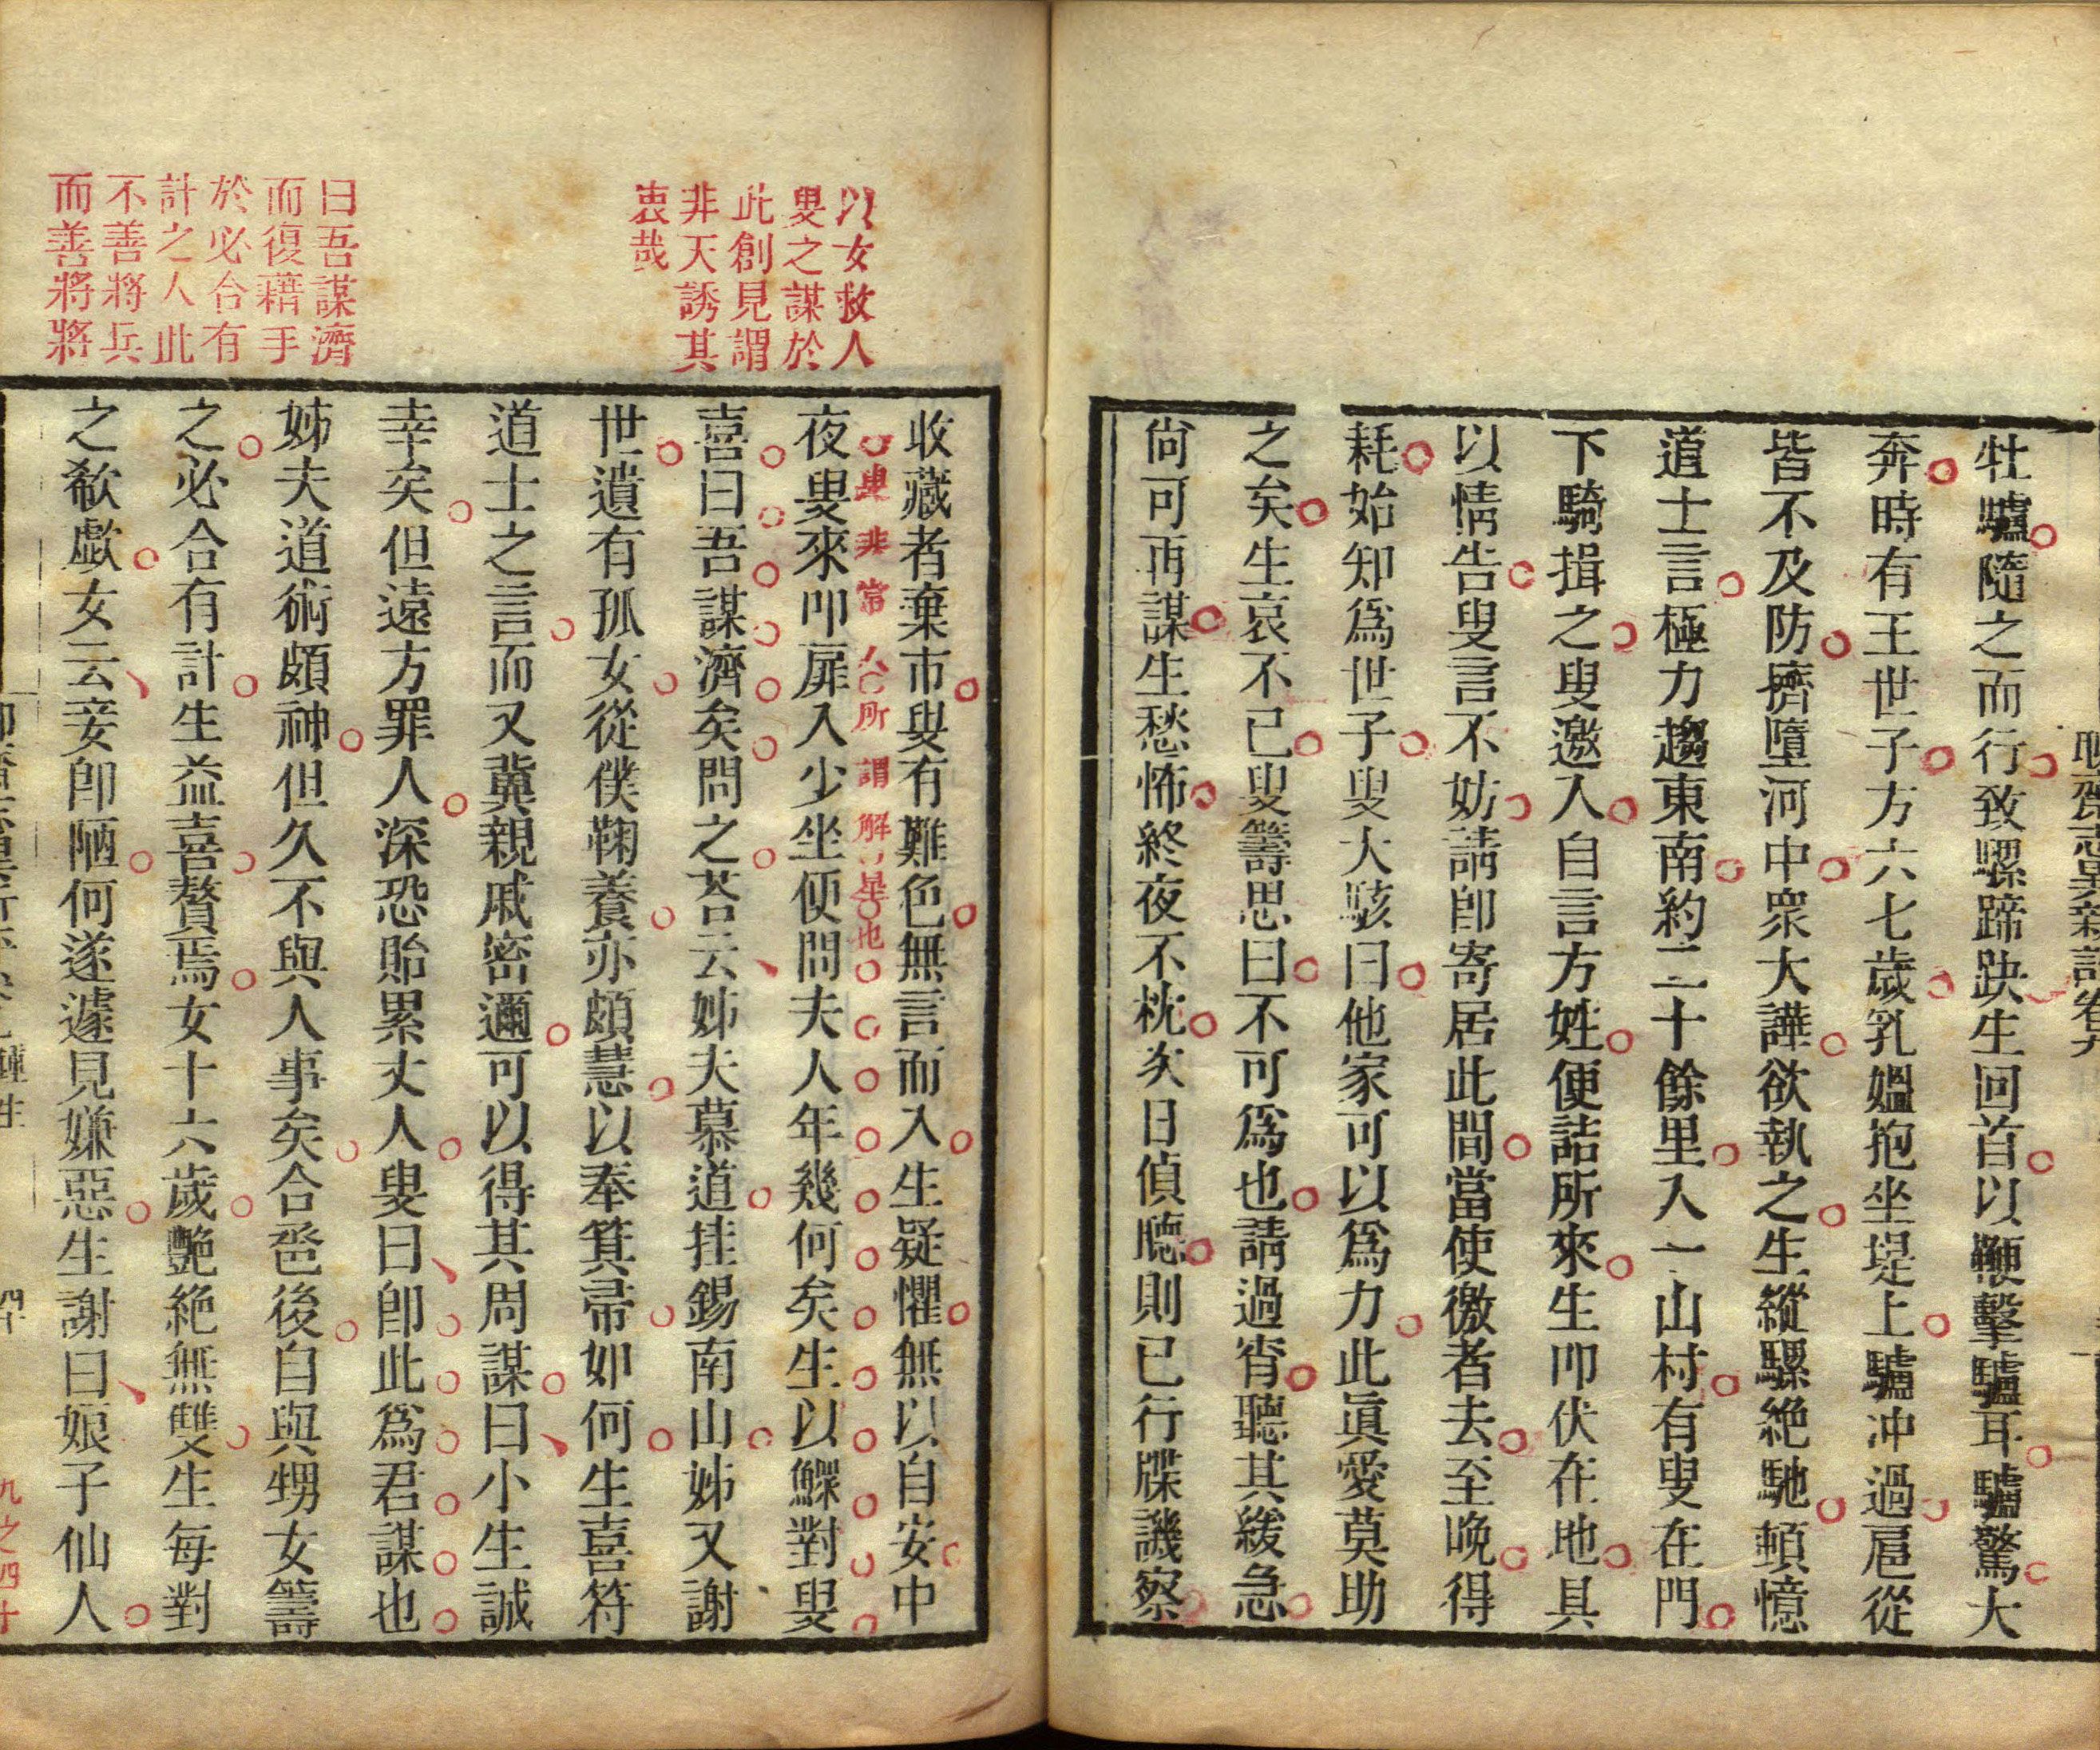 牡驢隨之而行致騾蹄趹生回首以鞭擊驢耳驢驚大
奔時有王世子方六七歲乳媼抱坐堤上驢冲過扈從
皆不及防擠墮河中衆大譁欲執之生縱騾絶馳頓憶
道士言極力趨東南約二十餘里入一山村有叟在門
下騎揖之叟邀入自言方姓便詰所來生叩伏在地具
以情告叟言不妨請卽寄居此間當使徼者去至晚得
耗始知爲世子叟大駭曰他家可以爲力此眞愛莫助
之矣生哀不已叟籌思曰不可爲也請過宵聽其緩急
尙可再謀生愁怖終夜不枕次日偵聽則已行牒譏察
以女救人
叟之謀於
此創見謂
非天誘其
衷哉
收藏者棄市叟有難色無言而入生疑懼無以自安中
叟非常人所謂解星也
夜叟來叩扉入少坐便問夫人年幾何矣生以鰥對叟
喜曰吾謀濟矣問之荅云姊夫慕道挂錫南山姊又謝
世遺有孤女從僕鞠養亦頗慧以奉箕帚如何生喜符
道士之言而又冀親戚密邇可以得其周謀曰小生誠
幸矣但遠方罪人深恐貽累丈人叟曰卽此爲君謀也
曰吾謀濟
而復藉手
於必合有
計之人此
不善將兵
而善將將
姊夫道術頗神但久不與人事矣合卺後自與甥女籌
之必合有計生益喜贅焉女十六歲艷絶無雙生每對
之欷歔女云妾卽陋何遂遽見嫌惡生謝曰娘子仙人
四十
九之四十